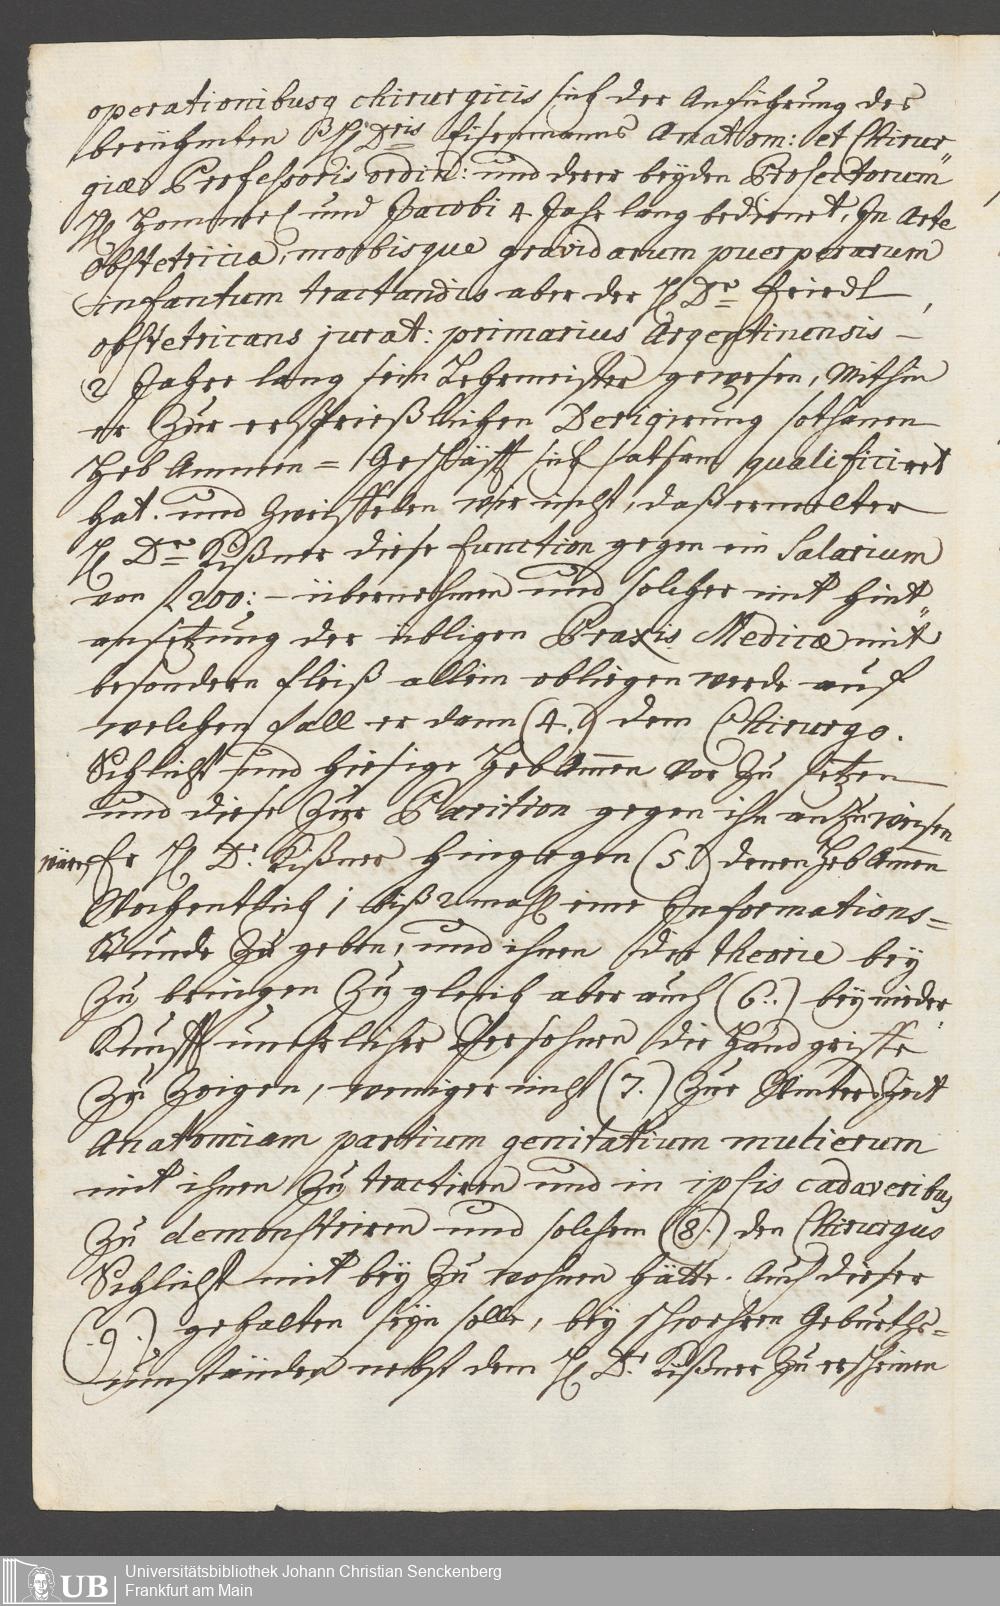 operationibusq chirurgicis sich der Anführung des
berühmten H Dris Eisenmanns Anatom: et Chirur„
giæ Professoris ordin: und derer beyden Prosectorum
H Hommel und Jacobi 4. Jahr lang bedienet, In Arte
Obstetricia, morbisque gravidarum puerperarum
infantum tractandis aber der H Dr Friedl,
obstetricans jurat: primarius Argentinensis –
2 Jahre lang sein Lehrmeister gewesen, Mithin
er zur ersprießlichen Derigirung sothanen
Heb Ammen = Geschäfft sich sattsam qualificiret
hat. und zweiffelen wir nicht, daß ermelter
H Dr Kißner diese function gegen ein Salarium
von f 200: – übernehmen und solcher mit hint„
ansetzung der übligen Praxis Medicæ mit
besondern fleiß allein obliegen werde auf
welchen fall er dann (4.) dem Chirurgo.
Schlicht und hiesige HebAmen vor zu setzen
und diese zur Parition gegen ihn anzuweisen
wäre, Er H Dr Kißner hingegen (5.) denen HebAmen
Wochentlich 1 biß 2 mahl eine Informations=
Stunde zu geben, und ihnen die theorie bey
zu bringen zu gleich aber auch (6.) bey nieder
Kunfft unehrlicher Persohnen die Handgriffe
zu zeigen, weniger nicht (7.) zur Winters Zeit
Anatomiam partium genitalium mulierum
mit ihnen zu tractiren und in ipsis cadaveribus
zu demonstriren und solchem (8.) den Chirurgus
Schlicht mit bey zu wohnen hätte. Auch dieser
(9.) gehalten seyn solle, bey schwehren Geburths=
umständen nebst dem H Dr Kißner zu erscheinen
Universitätsbibliothek Johann Christian Senckenberg
Frankfurt am Main
UB